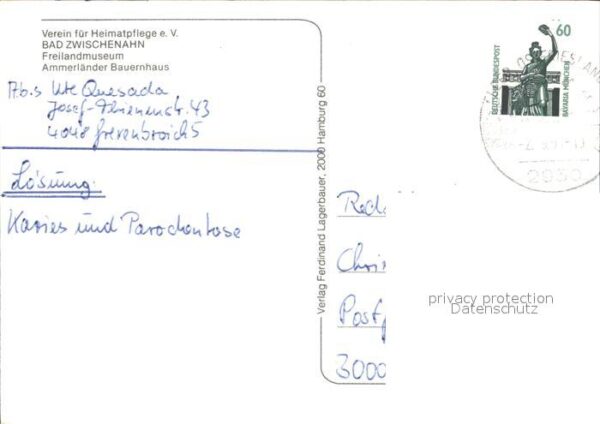 Verein für Heimatpflege e. V.
BAD ZWISCHENAHN
Freilandmuseum
Ammerländer Bauernhaus
Abs Ute Quesada
Josef-Thienenstr. 43
4048 Grevenbroich 5
Lösung:
Karies und Parodontose
Verlag Ferdinand Lagerbauer, 2000 Hamburg 60
60
DEUTSCHE BUNDESPOST
BAVARIA MÜNCHEN
2930
Red
Chri
Postf
3000
privacy protection
Datenschutz